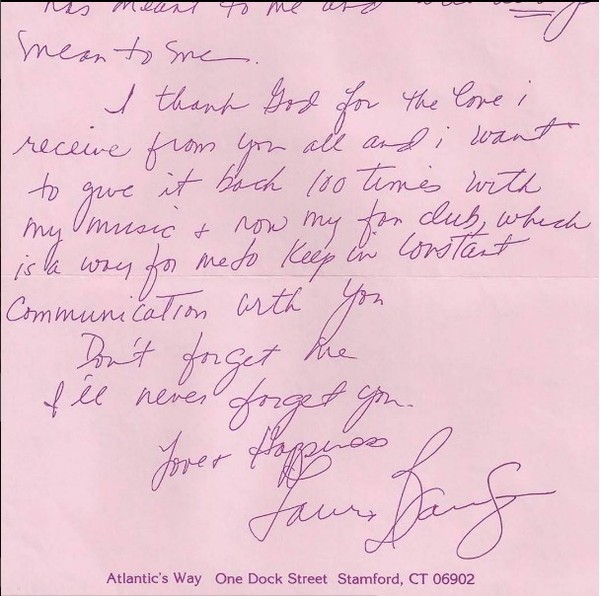 has meant to me and
mean to me.
I thank God for the love i
receive from you all and i want
to give it back 100 times with
my music & now my fan club, which
is a way for me to keep in constant
Communication with you
Don't forget me
I'll never forget you.
Love & Happiness
Atlantic's Way One Dock Street Stamford, CT 06902